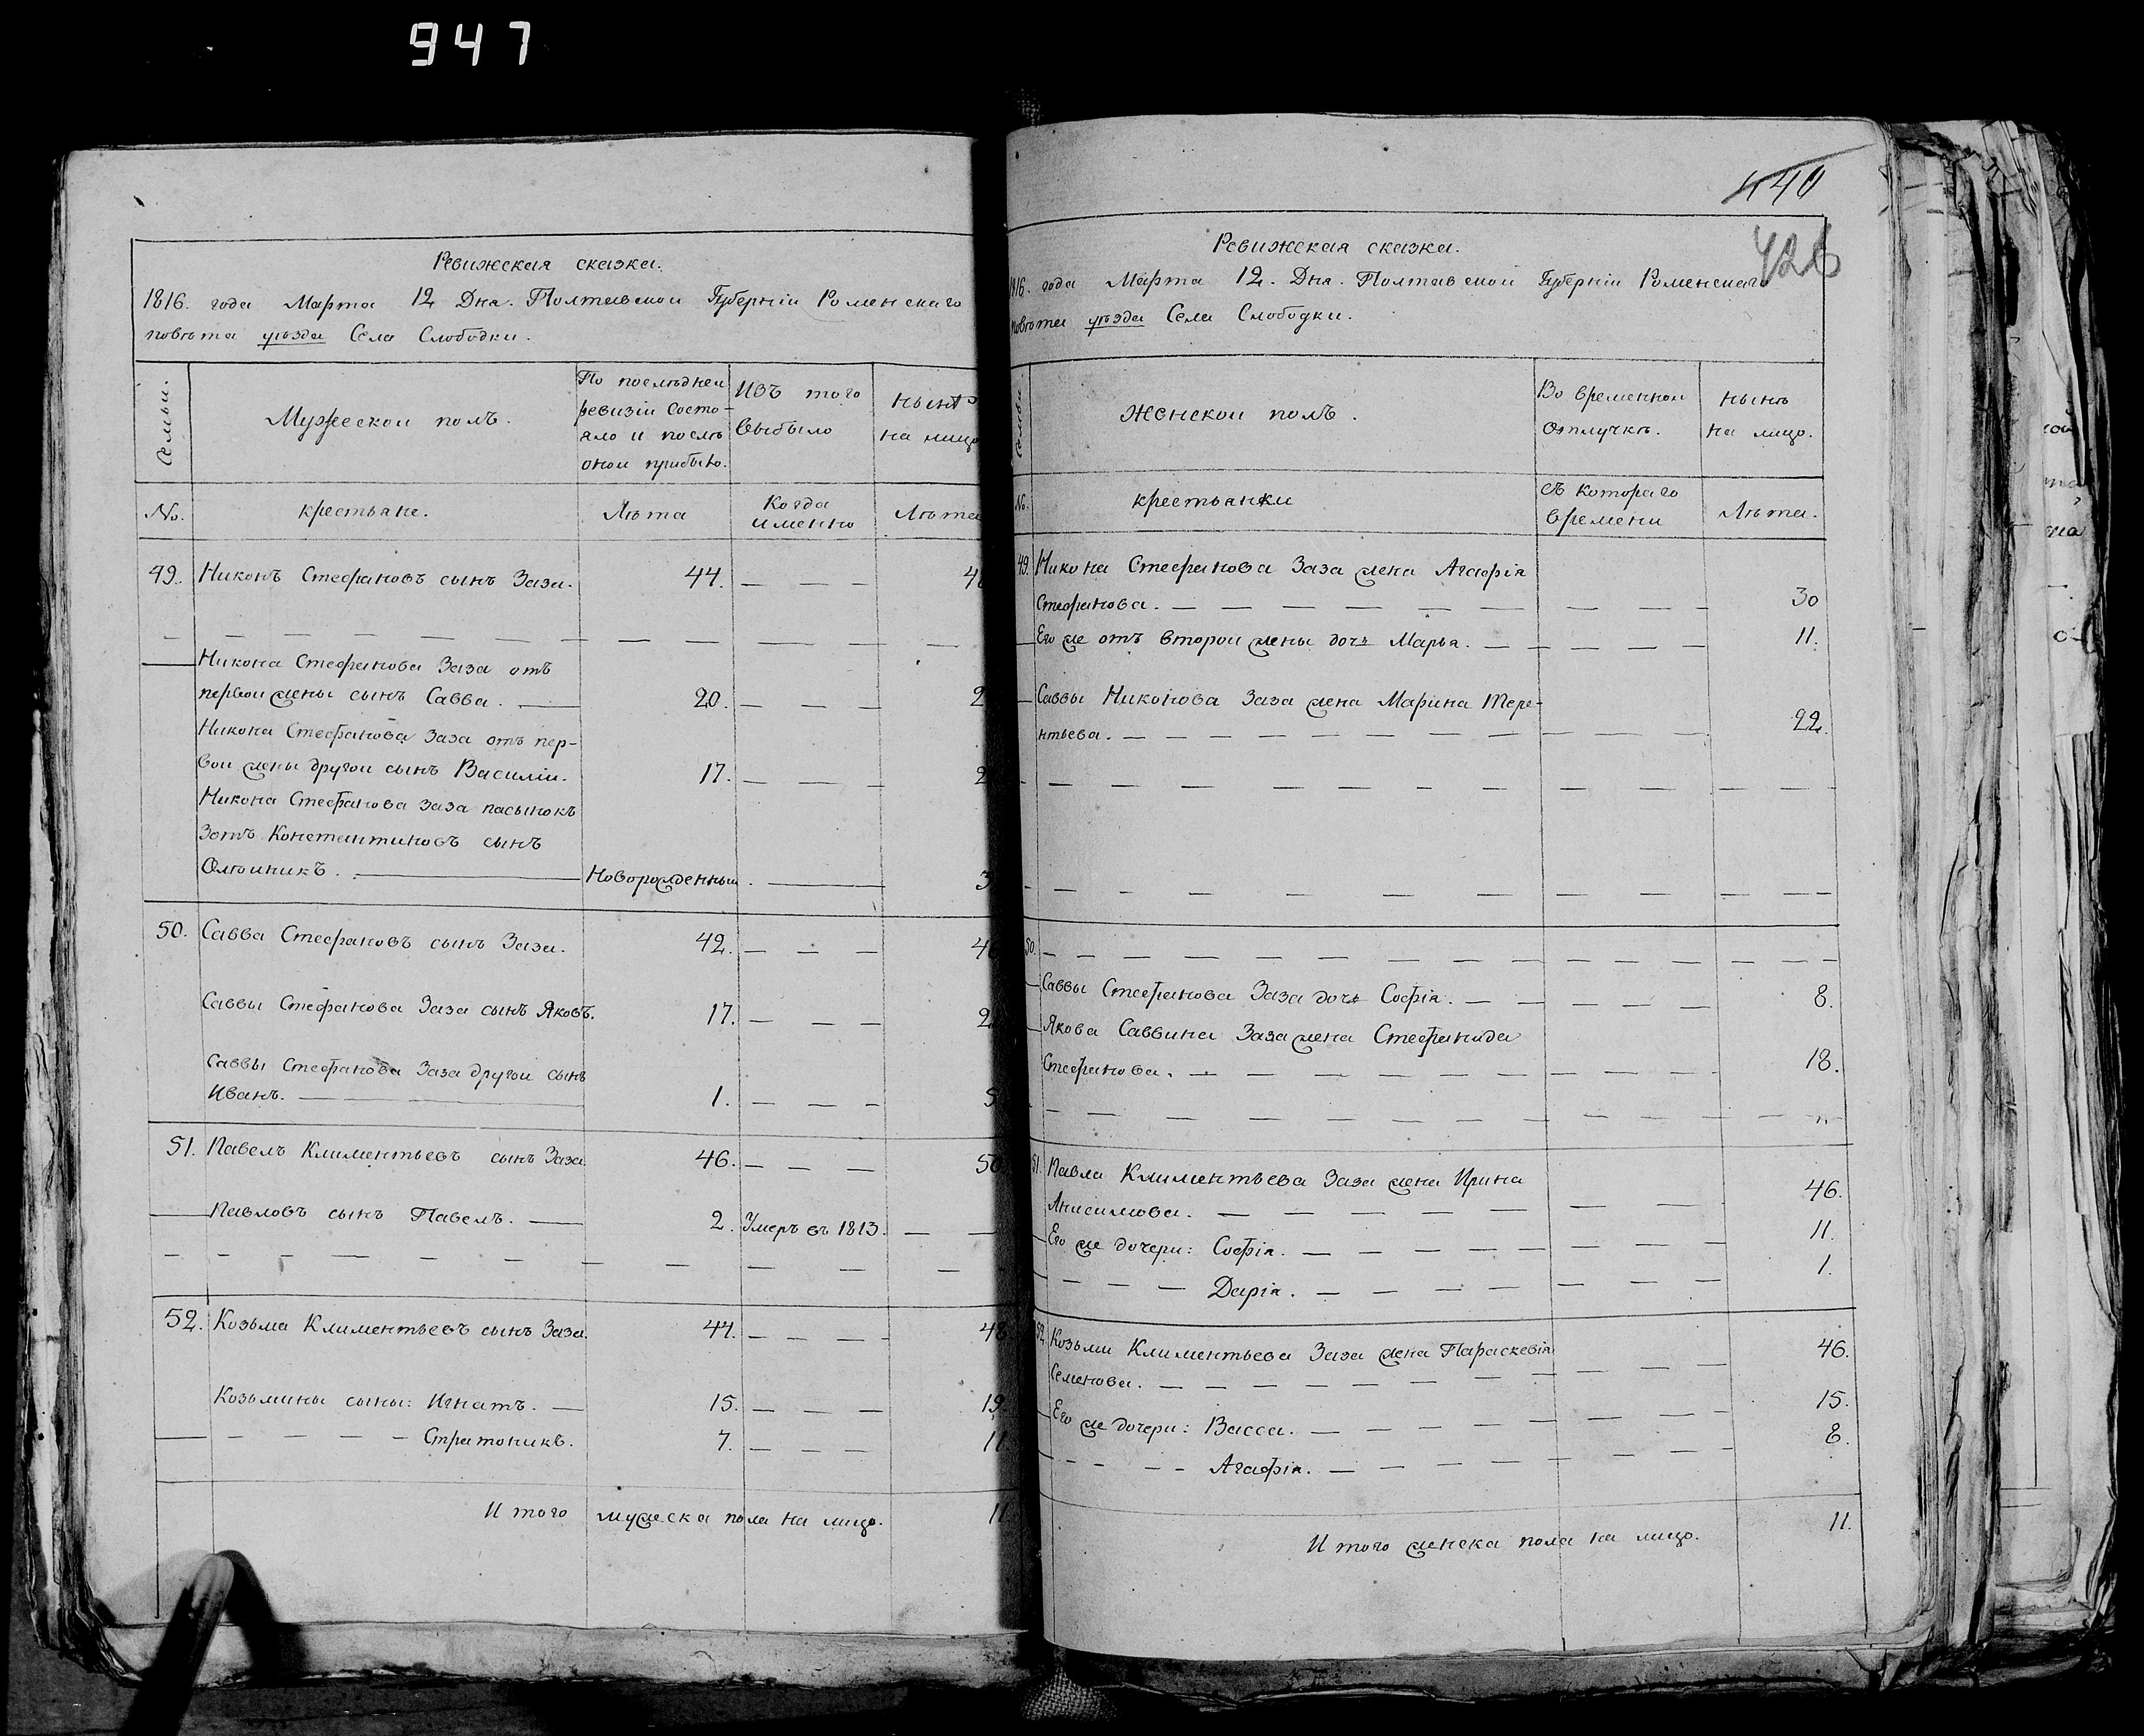 947
Ревижская сказка.
1816. года Марта 12 Дня. Полтавской Губернiи Роменскаго
повѣта уѣзда Села Слободки.
Семьи.
Мужескои полъ.
По послѣднеи
ревизiи состо-
яло и послѣ
онои прибыло.
Изъ того
выбыло
нынѣ
на лицо
No.
крестьяне.
Лѣта
Когда
именно
Лѣта
49. Никонъ Стефановъ сынъ Заза. 44.
Никона Стефанова Заза отъ
первои жены сынъ Савва. 20.
Никона Стефанова Заза отъ пер-
вои жены другои сынъ Василiи. 17.
Никона Стефанова Заза пасынокъ
Зотъ Константиновъ сынъ
Олѣиникъ. Новорожденныи.
50. Савва Стефановъ сынъ Заза. 42.
Саввы Стефанова Заза сынъ Яковъ. 17.
Саввы Стефанова Заза другои сынъ
Иванъ. 1. 5
51. Павелъ Климентьевъ сынъ Заза. 46. 50
Павловъ сынъ Павелъ. 2. Умеръ въ 1813.
52. Козьма Климентьевъ сынъ Заза. 44. 48
Козьмины сыны: Игнатъ. 15. 19.
Стратоникъ. 7. 11
Итого мужеска пола на лицо. 11
440
426
Ревижская сказка.
1816. года Марта 12. Дня. Полтавскои Губернiи Роменскаго
повѣта уѣзда Села Слободки.
Семьи
Женскои полъ.
Во временнои
отлучкѣ.
нынѣ
на лицо.
No.
крестьянки
съ котораго
времени
Лѣта.
49. Никона Стефанова Заза жена Агафiя
Стефанова. 30
Его же отъ второи жены дочь Марья. 11.
Саввы Никонова Заза жена Марина Тере-
нтьева. 22.
50.
Саввы Стефанова Заза дочь Софiя. 8.
Якова Саввина Заза жена Стефанида
Стефанова. 18.
51. Павла Климентьева Заза жена Ирина
Анисимова. 46.
Его же дочери: Софiя. 11.
Дарiя. 1.
52. Козьми Климентьева Заза жена Параскевiя
Семенова. 46.
Его же дочери: Васса. 15.
Агафiя. 8.
Итого женска пола на лицо. 11.